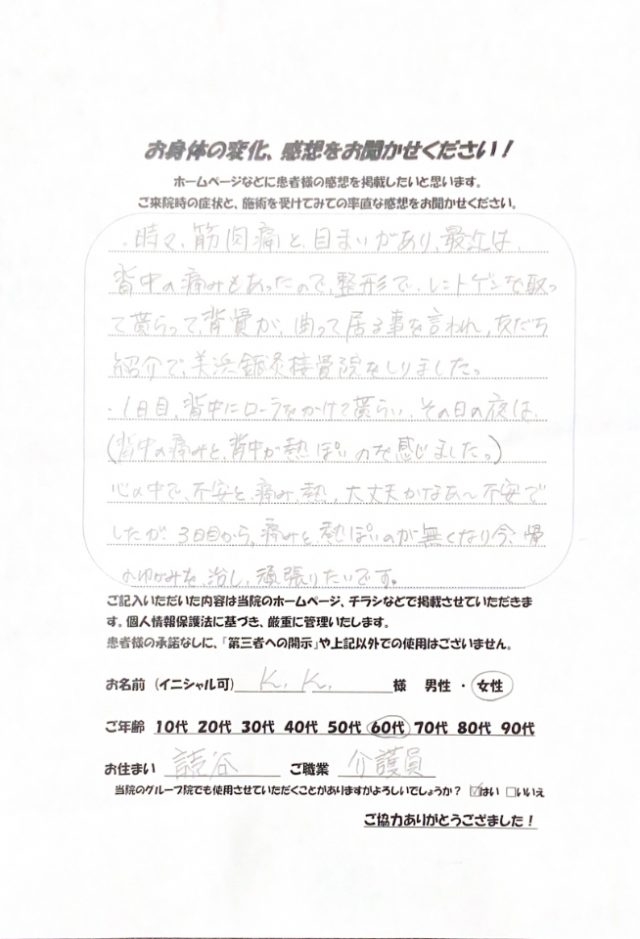 お身体の変化、感想をお聞かせください！
ホームページなどに患者様の感想を掲載したいと思います。
ご来院時の症状と、施術を受けてみての率直な感想をお聞かせください。
・時々、筋肉痛と、目まいがあり、最近は、
背中の痛みもあったので、整形で、レントゲンを取っ
て貰らって、背骨が、曲って居る事を言われ、友だち
紹介で、美浜鍼灸接骨院をしりました。
・1日目、背中にローラをかけて貰らい、その日の夜は、
(背中の痛みと、背中が熱ぽいのを感じました。)
心の中で、不安と、痛み、熱、大丈夫かなあ〜不安で
したが、3日目から、痛みと、熱ぽいのが無くなり今、
のゆがみを、治し、頑張りたいです。
ご記入いただいた内容は当院のホームページ、チラシなどで掲載させていただきま
す。個人情報保護法に基づき、厳重に管理いたします。
患者様の承諾なしに、「第三者への開示」や上記以外での使用はございません。
お名前（イニシャル可） K. K. 様 男性 ・ 女性
ご年齢 10代 20代 30代 40代 50代 60代 70代 80代 90代
お住まい 読谷 ご職業 介護員
当院のグループ院でも使用させていただくことがありますがよろしいでしょうか？ ☑はい □いいえ
ご協力ありがとうござました！